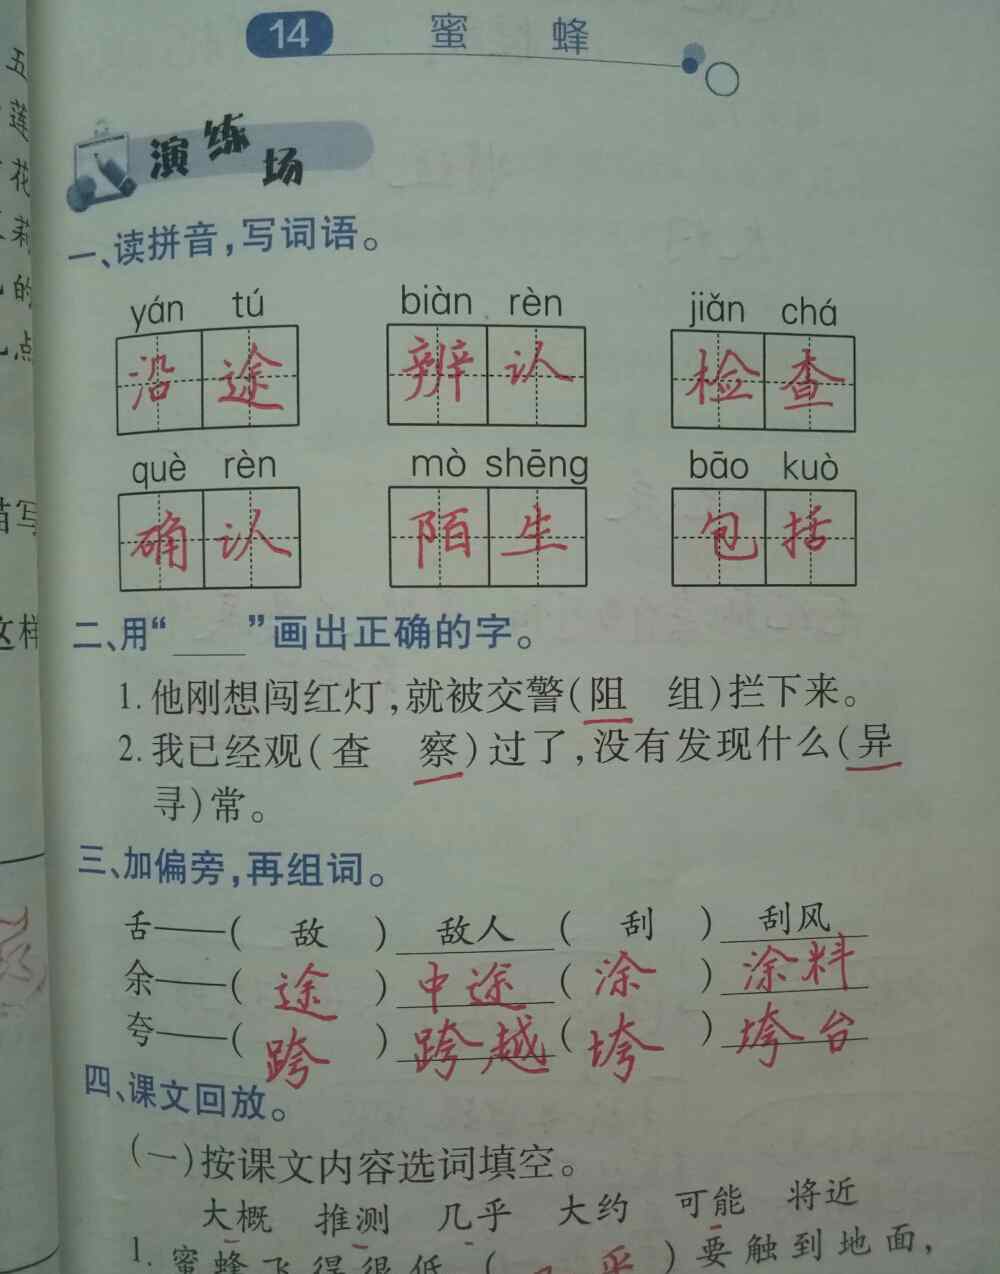 14 蜜蜂
演练场
一、读拼音,写词语。
yán tú biàn rèn jiǎn chá
沿途 辨认 检查
què rèn mò shēng bāo kuò
确认 陌生 包括
二、用“____”画出正确的字。
1.他刚想闯红灯,就被交警(阻 组)拦下来。
2.我已经观(查 察)过了,没有发现什么(异
寻)常。
三、加偏旁,再组词。
舌——( 敌 ) 敌人 ( 刮 ) 刮风
余——( 途 ) 中途 ( 涂 ) 涂料
夸——( 跨 ) 跨越 ( 垮 ) 垮台
四、课文回放。
(一)按课文内容选词填空。
大概 推测 几乎 大约 可能 将近
1.蜜蜂飞得很低,( 几乎 )要触到地面,
五
莲
花
莉
的
点
描写
这样